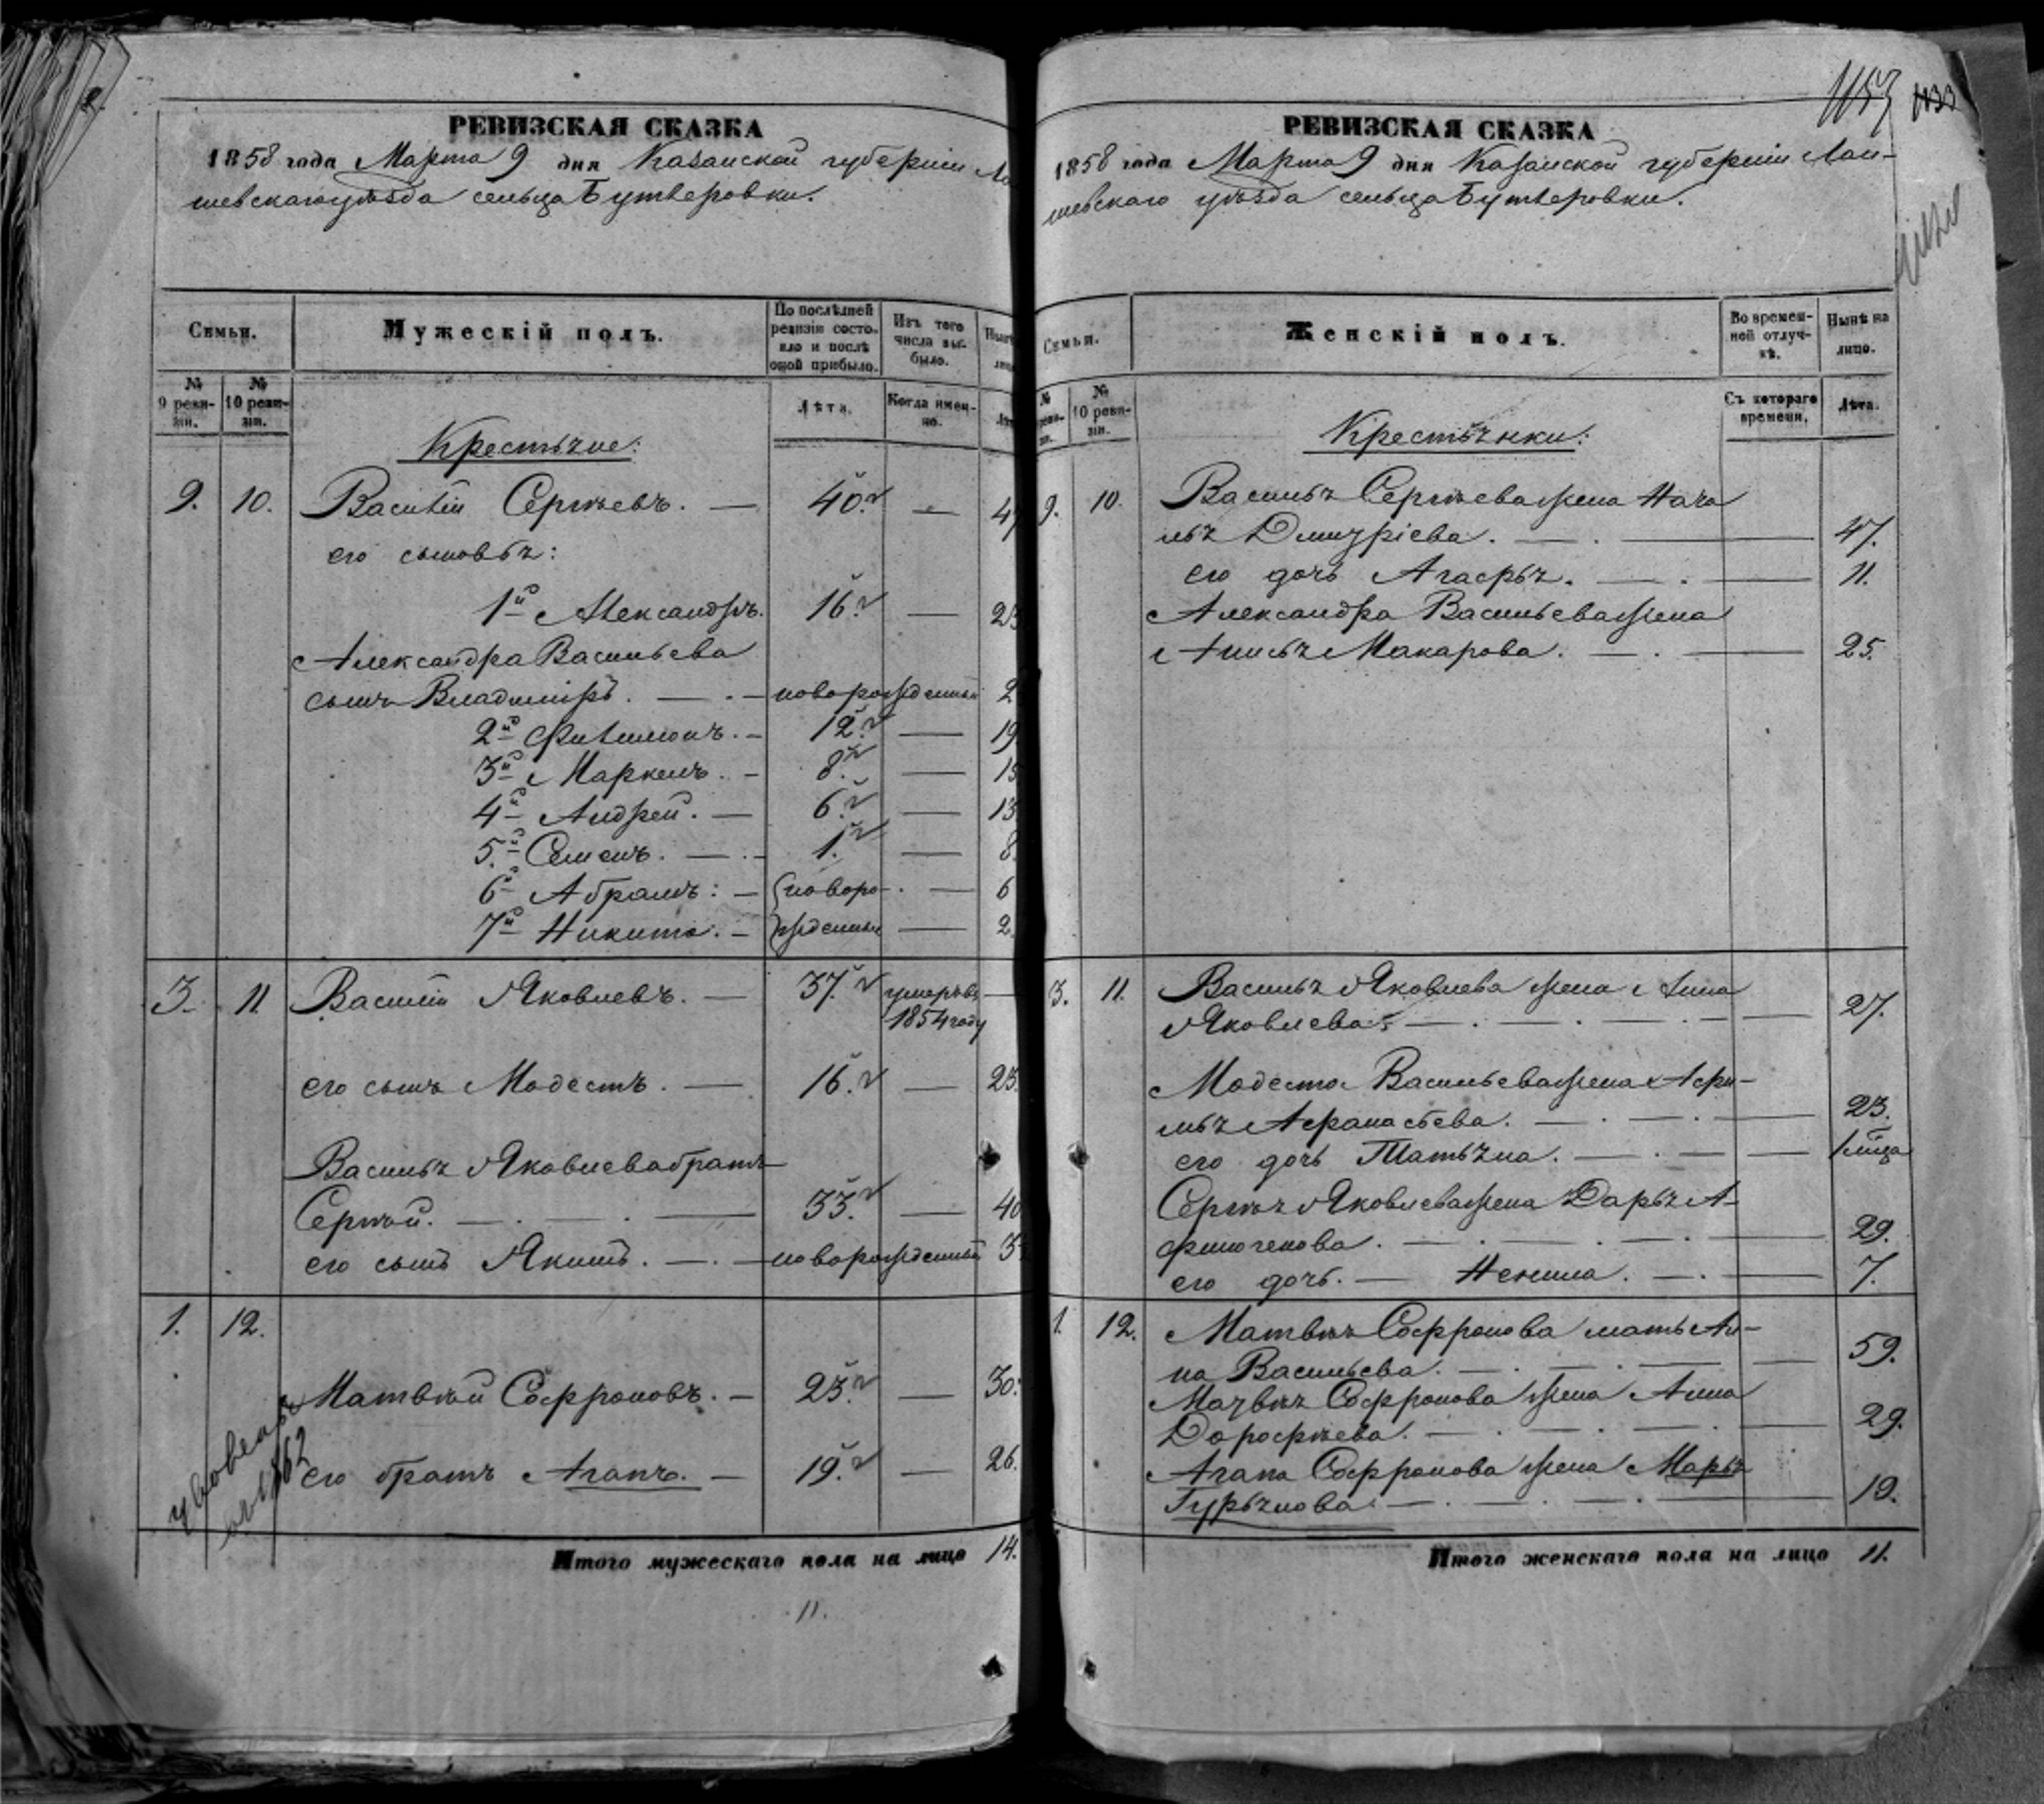 РЕВИЗСКАЯ СКАЗКА
1858 года Марта 9 дня Казанской губернiи Ла
шевскаго уѣзда сельца Бутлеровки.
Семьи.
Мужескiй полъ.
По послѣдней ревизiи состо-яло и послѣ оной прибыло.
Изъ того числа вы-было.
№ 9 реви-зiи.
№ 10 реви-зiи.
Лѣта.
Когда имен-но.
Крестьяне:
9. 10. Василiй Сергѣевъ. — 40. — 47
его сыновья:
1й Александръ. 16. — 23
Александра Васильева
сынъ Владимiръ. — новорожденный 2
2й Филимонъ. — 12. — 19
3й Маркелъ. — 8. — 15
4й Андрей. — 6. — 13
5й Семенъ. — 1. — 8.
6й Абрамъ: — новоро- — 6
7й Никита. — жденные — 2.
3. 11. Василiй Яковлевъ. — 37. умеръ въ 1854 году —
его сынъ Модестъ. — 16. — 23.
Василья Яковлева братъ
Сергѣй. — 33. — 40
его сынъ Якимъ. — новорожденный 3
1. 12.
Матвѣй Софроновъ. — 23. — 30.
его братъ Агапъ. — 19. — 26.
1862
Итого мужескаго пола на лицо 14.
11.
1157 1133
РЕВИЗСКАЯ СКАЗКА
1858 года Марта 9 дня Казанской губернiи Лаи-
шевскаго уѣзда сельца Бутлеровки.
Семьи.
Женскiй полъ.
Во времен-ной отлуч-кѣ.
Нынѣ на лицо.
№ 10 реви-зiи.
Съ котораго времени.
Лѣта.
Крестьянки:
9. 10. Василья Сергѣева жена Ната
лья Дмитрiева. — 47.
его дочь Агафья. — 11.
Александра Васильева жена
Анисья Макарова. — 25.
3. 11. Василья Яковлева жена Анна
Яковлева. — 27.
Модеста Васильева жена Афи-
мья Афанасьева. — 23.
его дочь Татьяна. —
Сергѣя Яковлева жена Дарья А-
финогенова. — 29.
его дочь. — Ненила. — 7.
1. 12. Матвѣя Софронова мать Ан-
на Васильева. — 59.
Матвѣя Софронова жена Анна
Дорофѣева. — 29.
Агапа Софронова жена Марья
Гурьянова. — 19.
Итого женскаго пола на лицо 11.